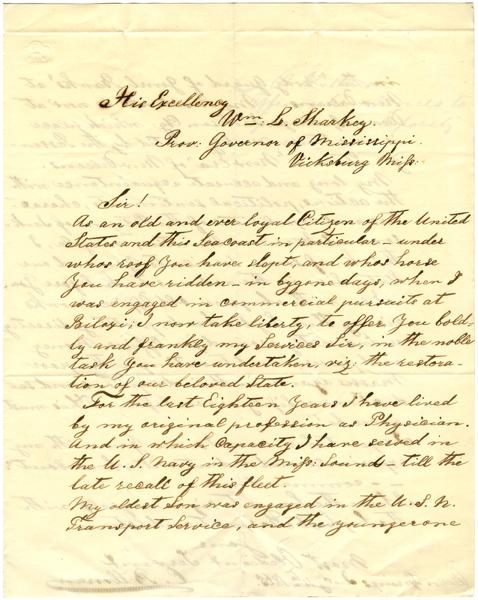 His Excellency
Wm: L. Sharkey.
Prov: Governor of Mississippi.
Vicksburg Miss:
Sir!
As an old and ever loyal Citizen of the United
States and this Seacoast in particular – under
whos roof You have slept, and whos horse
You have ridden – in bygone days, when I
was engaged in commercial pursuits at
Biloxi; I now take liberty, to offer You bold-
ly and frankly my Services Sir, in the noble
task You have undertaken, viz: the restora-
tion of our beloved State.
For the last Eighteen Years I have lived
by my original profession as Physician.
and in which Capacity I have served in
the U. S. Navy in the Miss: Sound – till the
late recall of this fleet.
My oldest Son was engaged in the U. S. N.
Transport Service, and the younger one